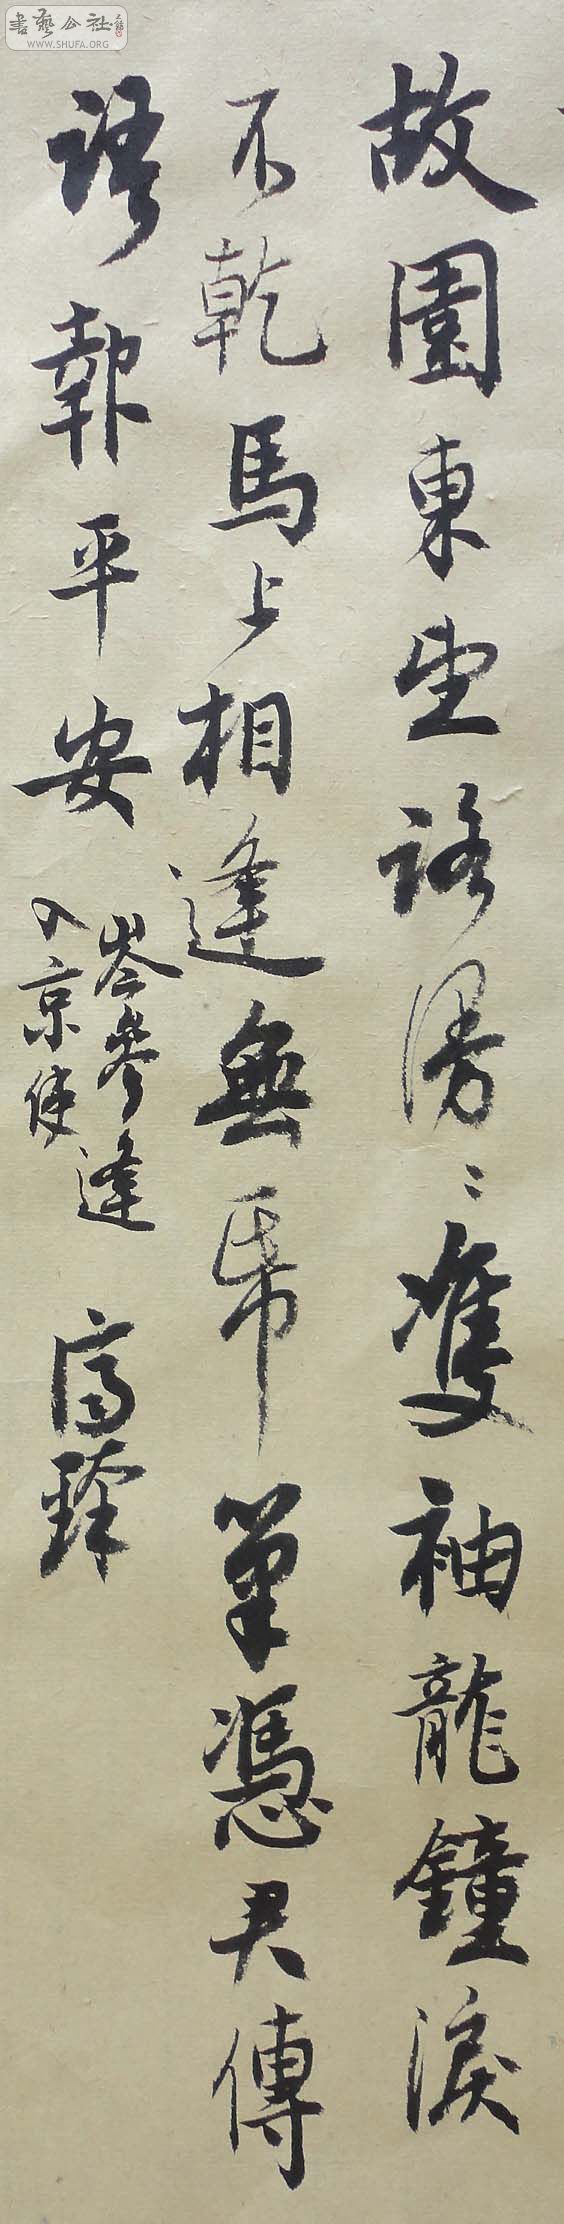 故園東望路漫〻雙袖龍鐘淚
不乾馬上相逢無帋筆憑君傳
語報平安
岑參逢
入京使
書藝公社
WWW.SHUFA.ORG